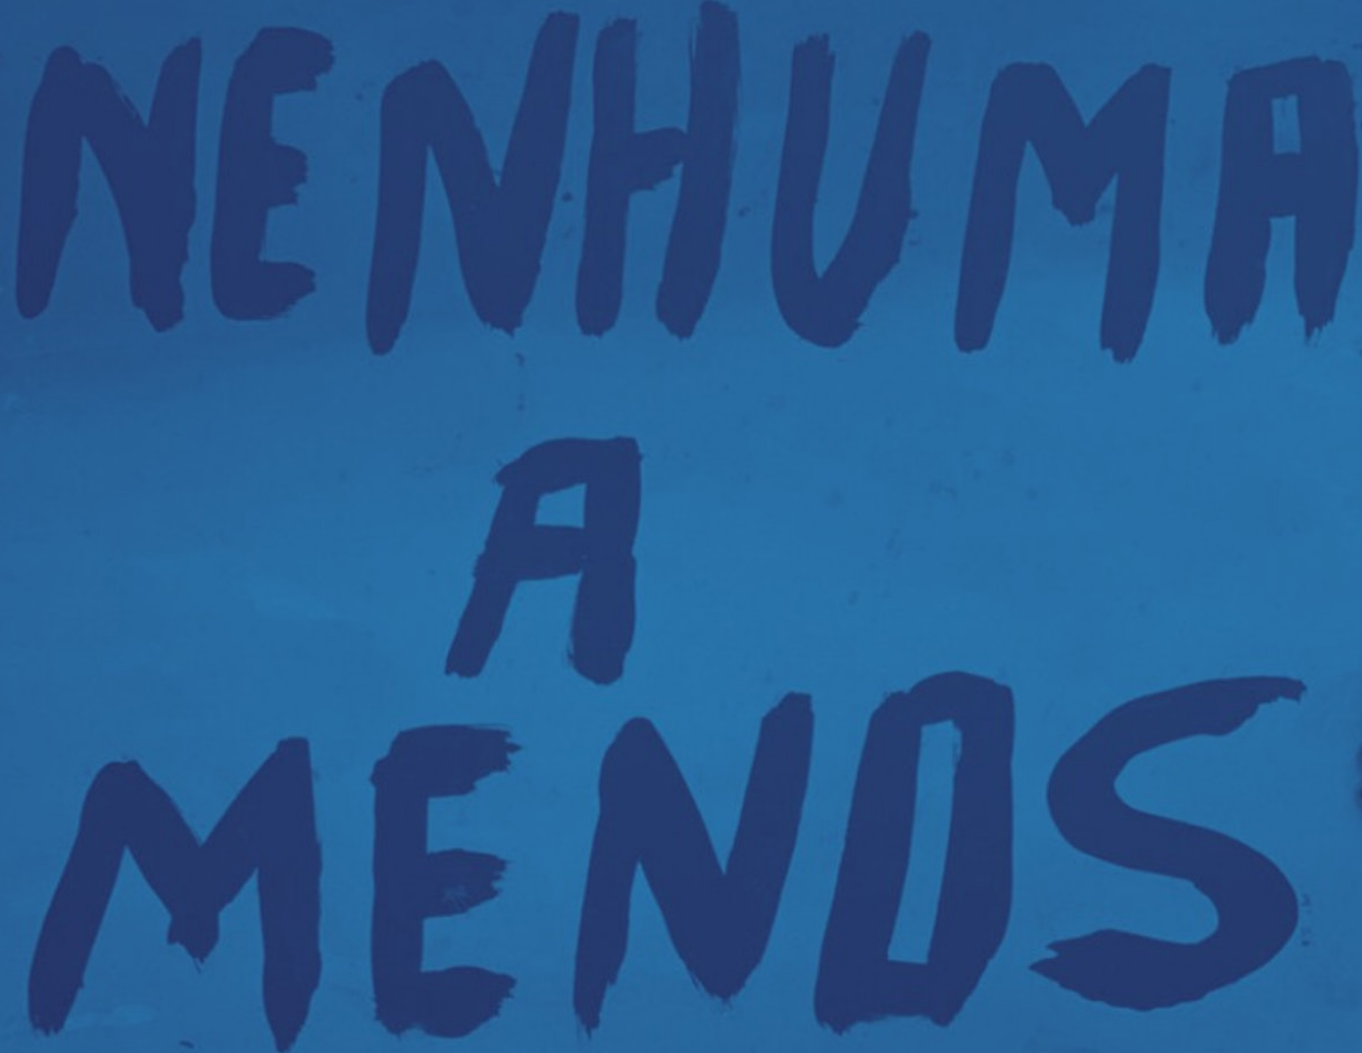 NENHUMA
A
MENOS